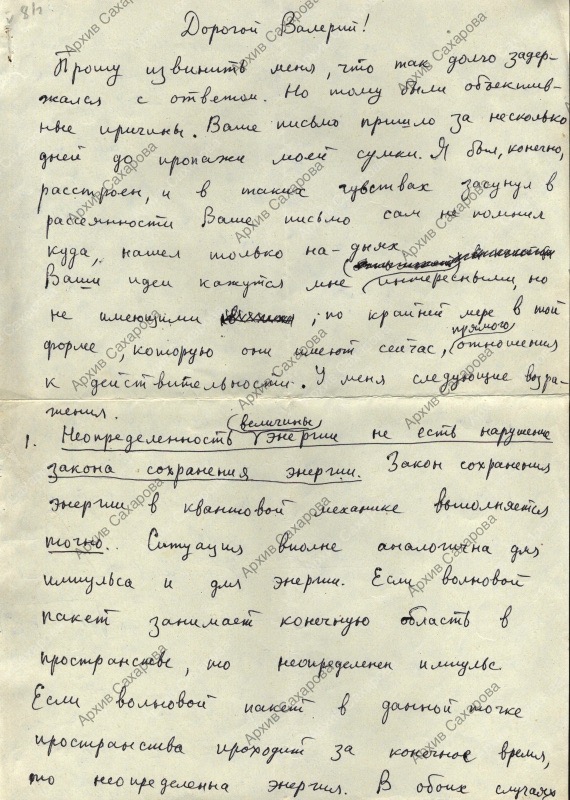 Дорогой Валерий!
Прошу извинить меня, что так долго задер-
жался с ответом. Но тому были объектив-
ные причины. Ваше письмо пришло за несколько
дней до пропажи моей сумки. Я был, конечно,
расстроен, и в таких чувствах засунул в
рассеянности Ваше письмо сам не помнил
куда, нашел только на-днях
Ваши идеи кажутся мне интересными, но
не имеющими , по крайней мере в той
форме, которую они имеют сейчас, прямого отношения
к действительности. У меня следующие возра-
жения.
1. Неопределенность величины энергии не есть нарушение
закона сохранения энергии. Закон сохранения
энергии в квантовой механике выполняется
точно.. Ситуация вполне аналогична для
импульса и для энергии. Если волновой
пакет занимает конечную область в
пространстве, то неопределенен импульс.
Если волновой пакет в данной точке
пространства проходит за конечное время,
то неопределенна энергия. В обоих случаях
Архив Сахарова